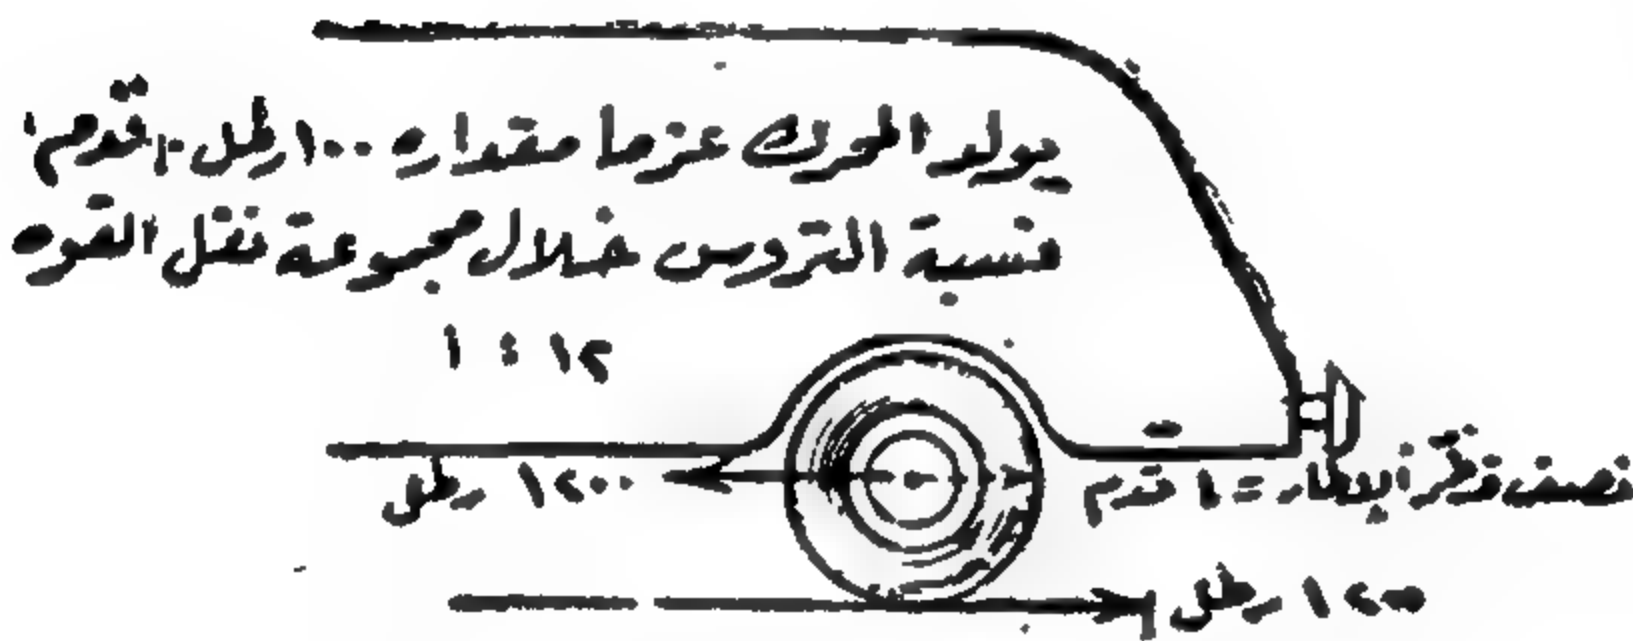 يولد المحرك عزما مقداره ١٠٠ رطل . قدم
نسبة التروس خلال مجموعة نقل القوه
١٢ : ١
١٢٠٠ رطل
نصف قطر الإطار = ١ قدم
١٢٠٠ رطل